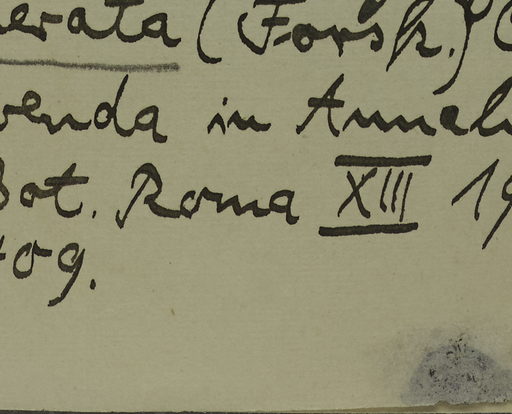 erata (Forsk.)
venda in Annali
Bot. Roma XIII 19
tog.